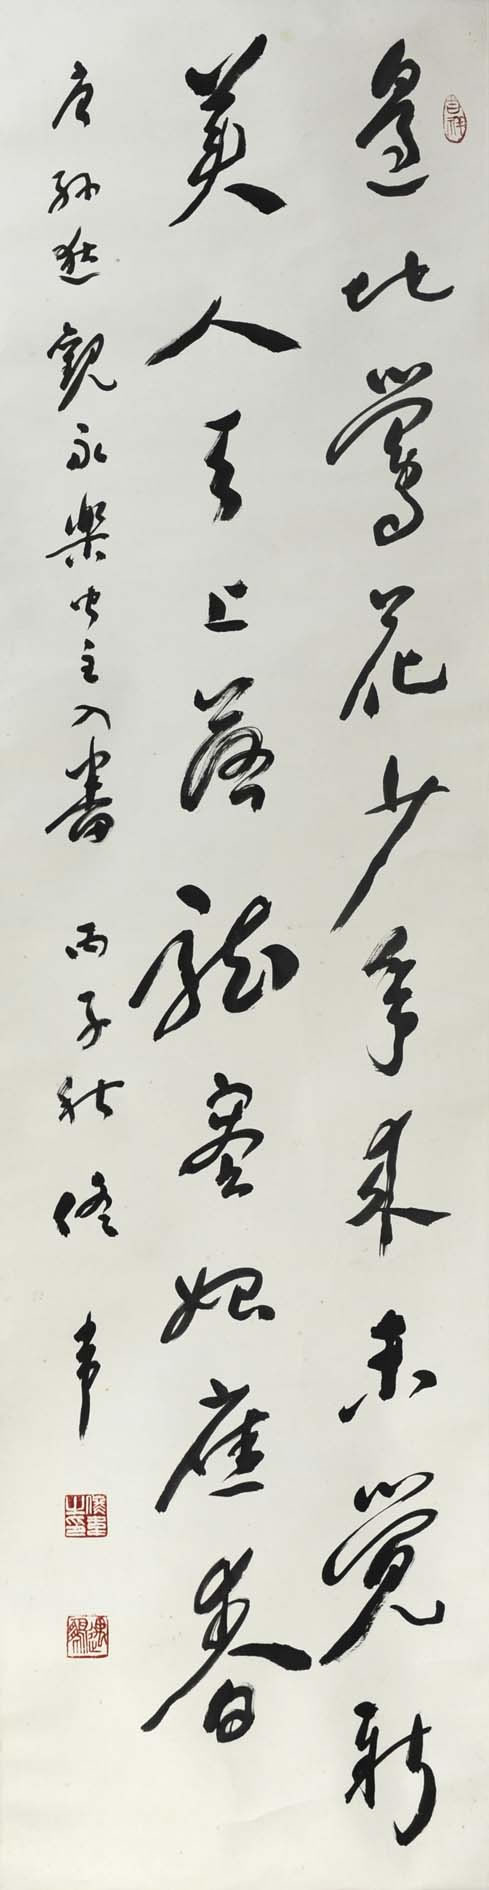 吉祥
邊地鶯花少年来未覺新
美人天上落龍塞始應春
唐孫逖觀永樂公主入蕃 丙子秋